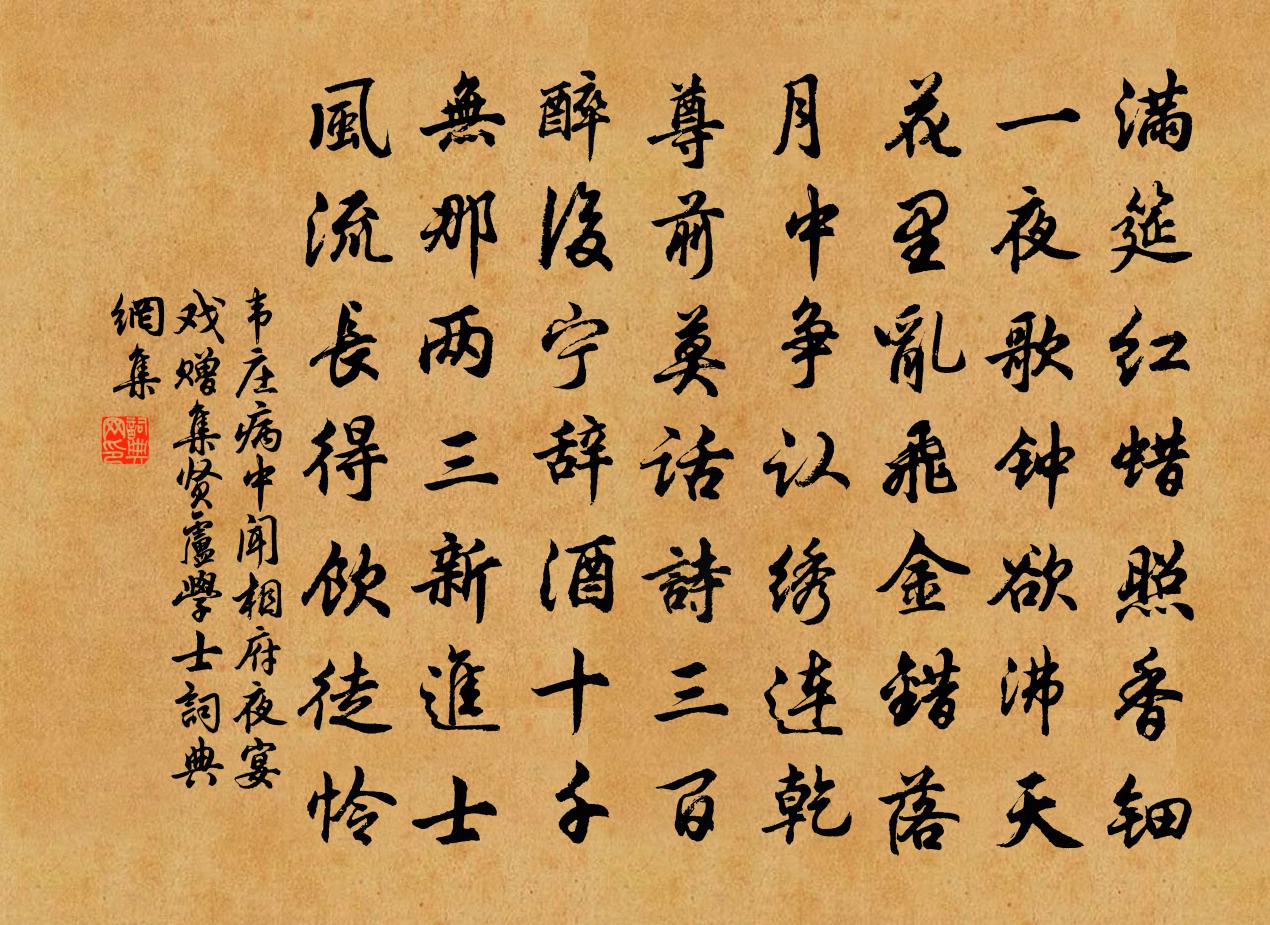 满筵红蜡照香钿
一夜歌钟欲沸天
花里亂飛金錯落
月中争认绣连乾
尊前莫话詩三百
醉後宁辞酒十千
無那两三新進士
風流長得饮徒怜
韦庄病中闻相府夜宴
戏赠集贤盧學士詞典
網集
詞典网印